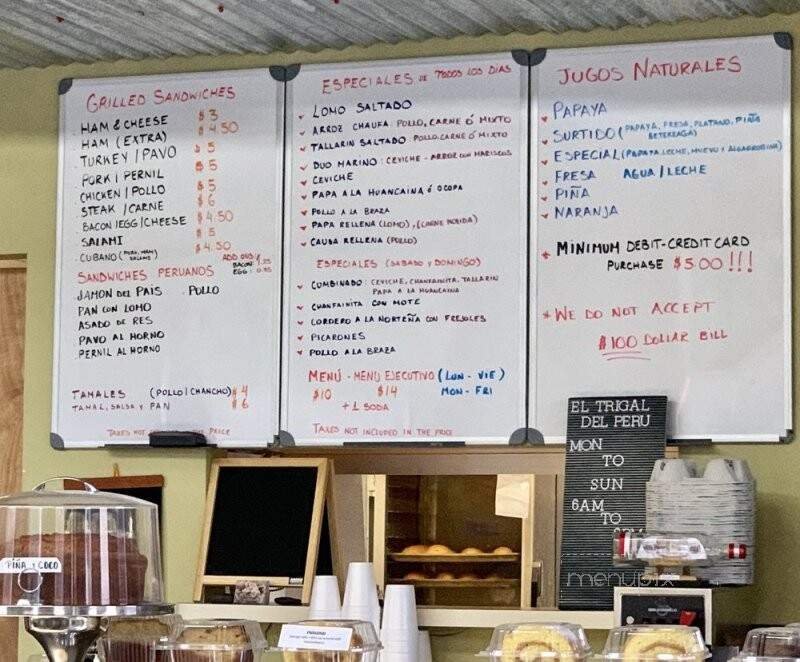 GRILLED SANDWICHES
HAM & CHEESE $3
HAM (EXTRA) $4.50
TURKEY/PAVO $5
PORK/PERNIL $5
CHICKEN/POLLO $5
STEAK/CARNE $6
BACON/EGG/CHEESE $4.50
SALAMI $5
CUBANO (PORK, HAM, SALAMI) $4.50
ADD ONS/
BACON: 1.25
EGG: 0.95
SANDWICHES PERUANOS
JAMON DEL PAIS . POLLO
PAN CON LOMO
ASADO DE RES
PAVO AL HORNO
PERNIL AL HORNO
TAMALES (POLLO/CHANCHO) $4
TAMAL, SALSA Y PAN $6
TAXES NOT THE PRICE
ESPECIALES DE TODOS LOS DIAS
LOMO SALTADO
ARROZ CHAUFA: POLLO, CARNE Ó MIXTO
TALLARIN SALTADO POLLO, CARNE Ó MIXTO
DUO MARINO: CEVICHE - ARROZ CON MARISCOS
CEVICHE
PAPA A LA HUANCAINA Ó OCOPA
POLLO A LA BRAZA
PAPA RELLENA (LOMO), (CARNE MOLIDA)
CAUSA RELLENA (POLLO)
ESPECIALES (SABADO Y DOMINGO)
COMBINADO: CEVICHE, CHANFAINITA, TALLARIN
PAPA A LA HUANCAINA
CHANFAINITA CON MOTE
CORDERO A LA NORTEÑA CON FREJOLES
PICARONES
POLLO A LA BRAZA
MENÚ - MENU EJECUTIVO (LUN - VIE)
$10 $14 MON - FRI
+ 1 SODA
TAXES NOT INCLUDED IN THE PRICE
JUGOS NATURALES
PAPAYA
SURTIDO (PAPAYA, FRESA, PLATANO, PIÑA
BETERRAGA)
ESPECIAL (PAPAYA, LECHE, HUEVO Y ALGARROBINA)
FRESA AGUA/LECHE
PIÑA
NARANJA
* MINIMUM DEBIT-CREDIT CARD
PURCHASE $5.00!!!
* WE DO NOT ACCEPT
$100 DOLLAR BILL
EL TRIGAL
DEL PERU
MON
TO
SUN
6AM
TO
PIÑA Y COCO
menupix